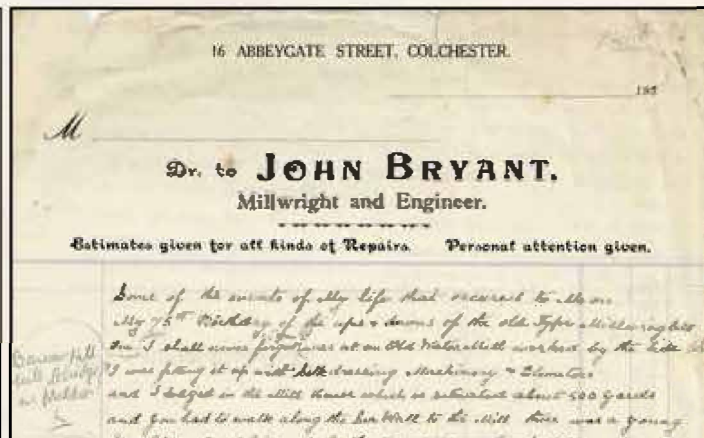 16 ABBEYGATE STREET, COLCHESTER.
192
M
Dr. to JOHN BRYANT.
Millwright and Engineer.
Estimates given for all kinds of Repairs. Personal attention given.
Some of the events of My life that occured to Me on
My 75th Birthday of the ups & downs of the old Type Millwright
I shall never forget was at an Old Water Mill worked by the tide
I was fitting it up with Machinery & Elevators
and I lodged in the Mill House which is situated about 500 yards
and you had to walk along the Sea Wall to the Mill there was a young